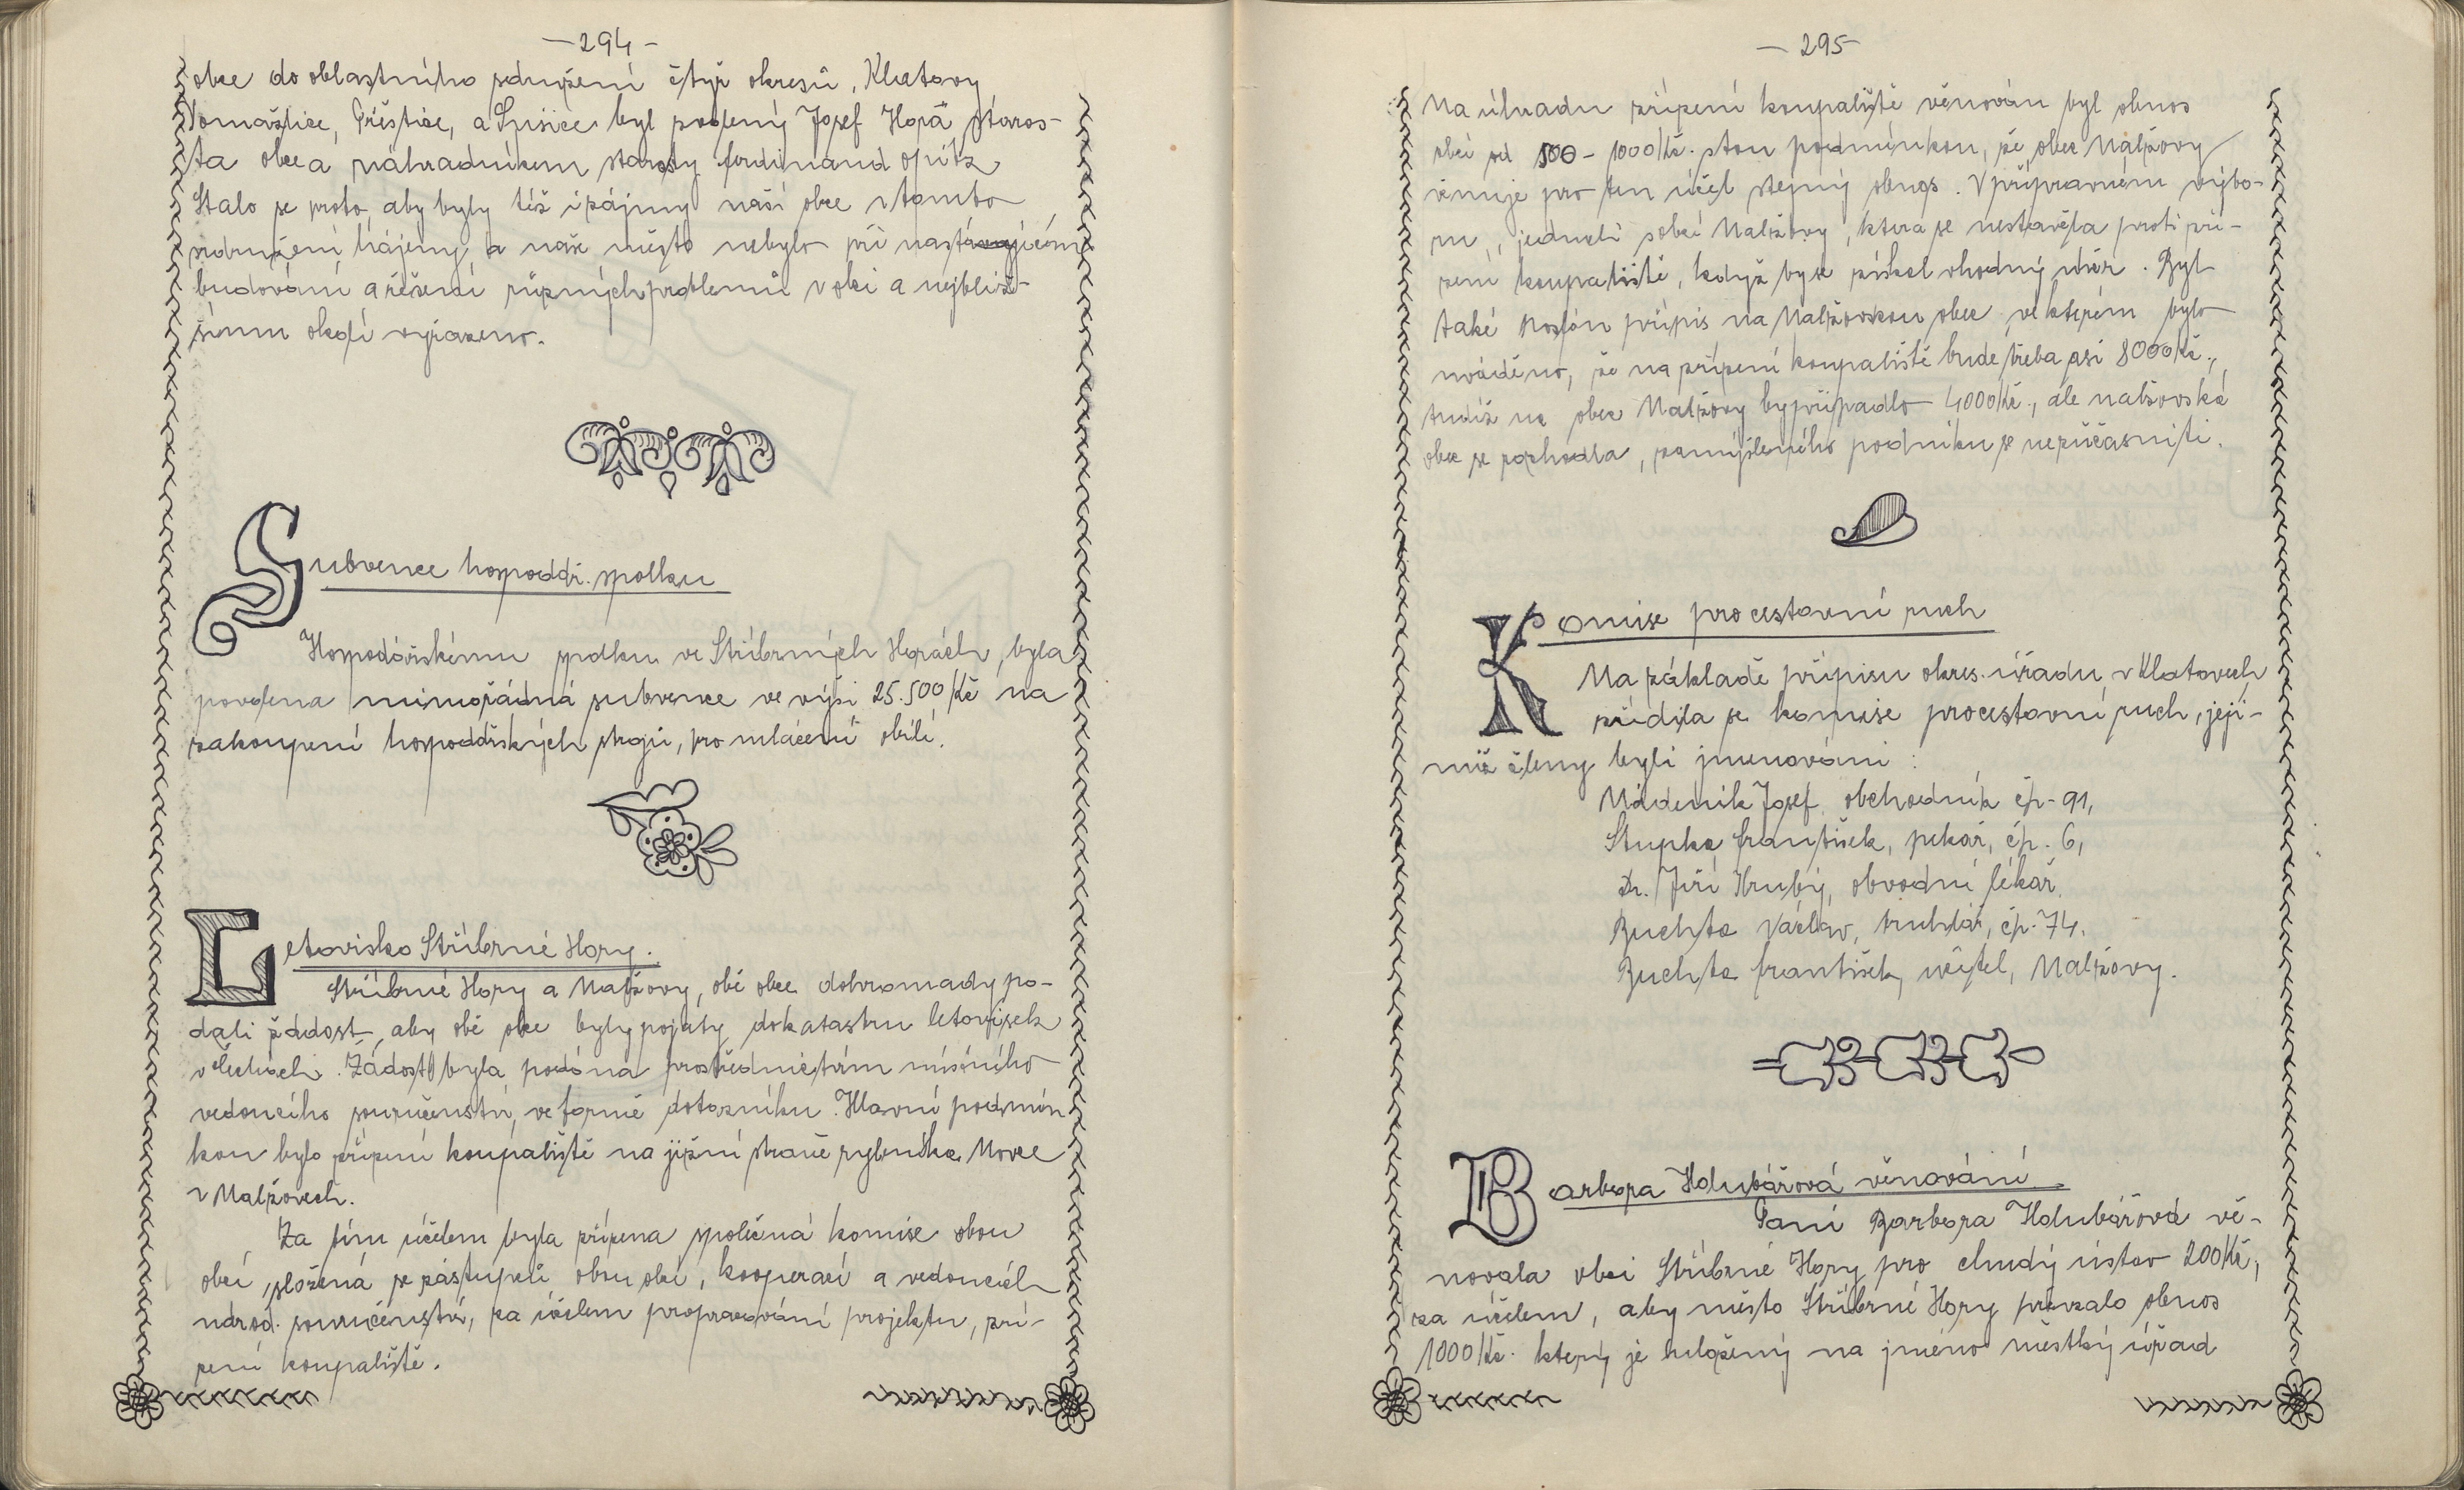 — 294 —
obce do oblastního sdružení čtyř okresů, Klatovy
Domažlice, Přeštice, a Sušice byl zvolený Josef Hora staros-
ta obce a náhradníkem starosty Ferdinand Opitz
Stalo se proto, aby byly též i zájmy naší obce v tomto
sdružení hájeny, a naše město nebylo při nastávajícím
budování a řešení různých problemů v obci a nejbliž-
šímu okolí vyřazeno.
Subvence hospodář. spolku
Hospodářskému spolku ve Stříbrných Horách, byla
povolena mimořádná subvence ve výši 25.500 Kč na
zakoupení hospodářských strojů, pro mlácení obilí.
Letovisko Stříbrné Hory.
Stříbrné Hory a Nalžovy, obě obce dohromady po-
dali žádost, aby obě obce byly pojaty do katastru letovisek
v Čechách. Žádost byla podána prostřednictvím místního
vedoucího souručenství, ve formě dotazníku. Hlavní podmín
kou bylo zřízení koupaliště na jižní straně rybníka Novce
v Nalžovech.
Za tím účelem byla zřízena společná komise obou
obcí složená ze zástupců obou obcí, kooperací a vedoucích
národ. souručenství, za účelem propracování projektu, zří-
zení koupaliště.
— 295 —
Na úhradu zřízení koupaliště věnován byl obnos
obcí od 500 - 1000 Kč. s tou podmínkou, že obec Nalžovy
věnuje pro ten účel stejný obnos. V přípravném výbo-
ru, jednali s obcí Nalžovy, která se nestavěla proti zří-
zení koupaliště, když by se získal vhodný úvěr. Byl
také poslán přípis na Nalžovskou obec, ve kterém bylo
uváděno, že na zřízení koupaliště bude třeba asi 8000 Kč.,
tudíž na obec Nalžovy by připadlo 4000 Kč., ale nalžovská
obec se rozhodla, zamýšleného podniku se nezúčasniti.
Komise pro cestovní ruch
Na základě přípisu okres. úřadu v Klatovech
zřídila se komise pro cestovní ruch, její-
miž členy byli jmenováni :
Nádeník Josef, obchodník čp. 91,
Stupka František, pekař, čp. 6,
Dr. Jiří Hrubý, obvodní lékař.
Buchta Václav, truhlář, čp. 74.
Buchta František, učitel, Nalžovy.
Barbora Holubářová věnování
Paní Barbora Holubářová vě-
novala obci Stříbrné Hory pro chudý ústav 200 Kč,
za účelem, aby město Stříbrné Hory převzalo obnos
1000 Kč. který je uložený na jméno městký úřad